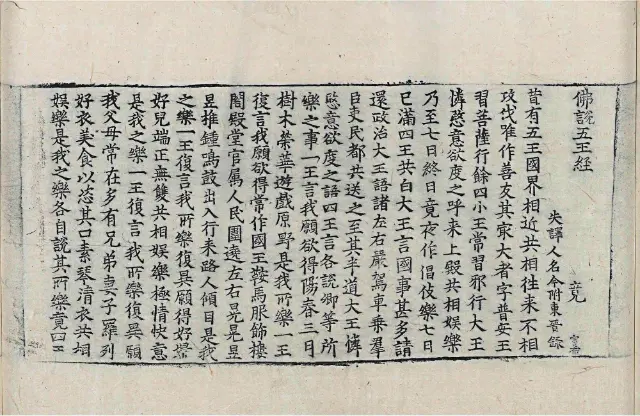 佛說五王経
失譯人名今附東晋録
昔有五王國界相近共相往来不相
攻伐唯作善友其㝡大者字普安王
習菩薩行餘四小王常習邪行大王
憐愍意欲度之呼来上殿共相娛樂
乃至七日終日竟夜作倡伎樂七日
已滿四王共白大王言國事甚多請
還政治大王語諸左右嚴駕車乘羣
臣吏民都共送之至其半道大王憐
愍意欲度之語四王言各說卿等所
樂之事一王言我願欲得陽春三月
樹木榮華遊戲原野是我所樂一王
復言我願欲得常作國王鞍馬服飾樓
閣殿堂官属人民圍遶左右晃晃昱
昱椎鍾鳴鼓出入行来路人傾目是我
之樂一王復言我所樂復異願得好婦
好兒端正無雙共相娛樂極情快意
是我之樂一王復言我所樂復異願
我父母常在多有兄弟妻子羅列
好衣美食以恣其口素琴清衣共相
娛樂是我之樂各自說其所樂竟四